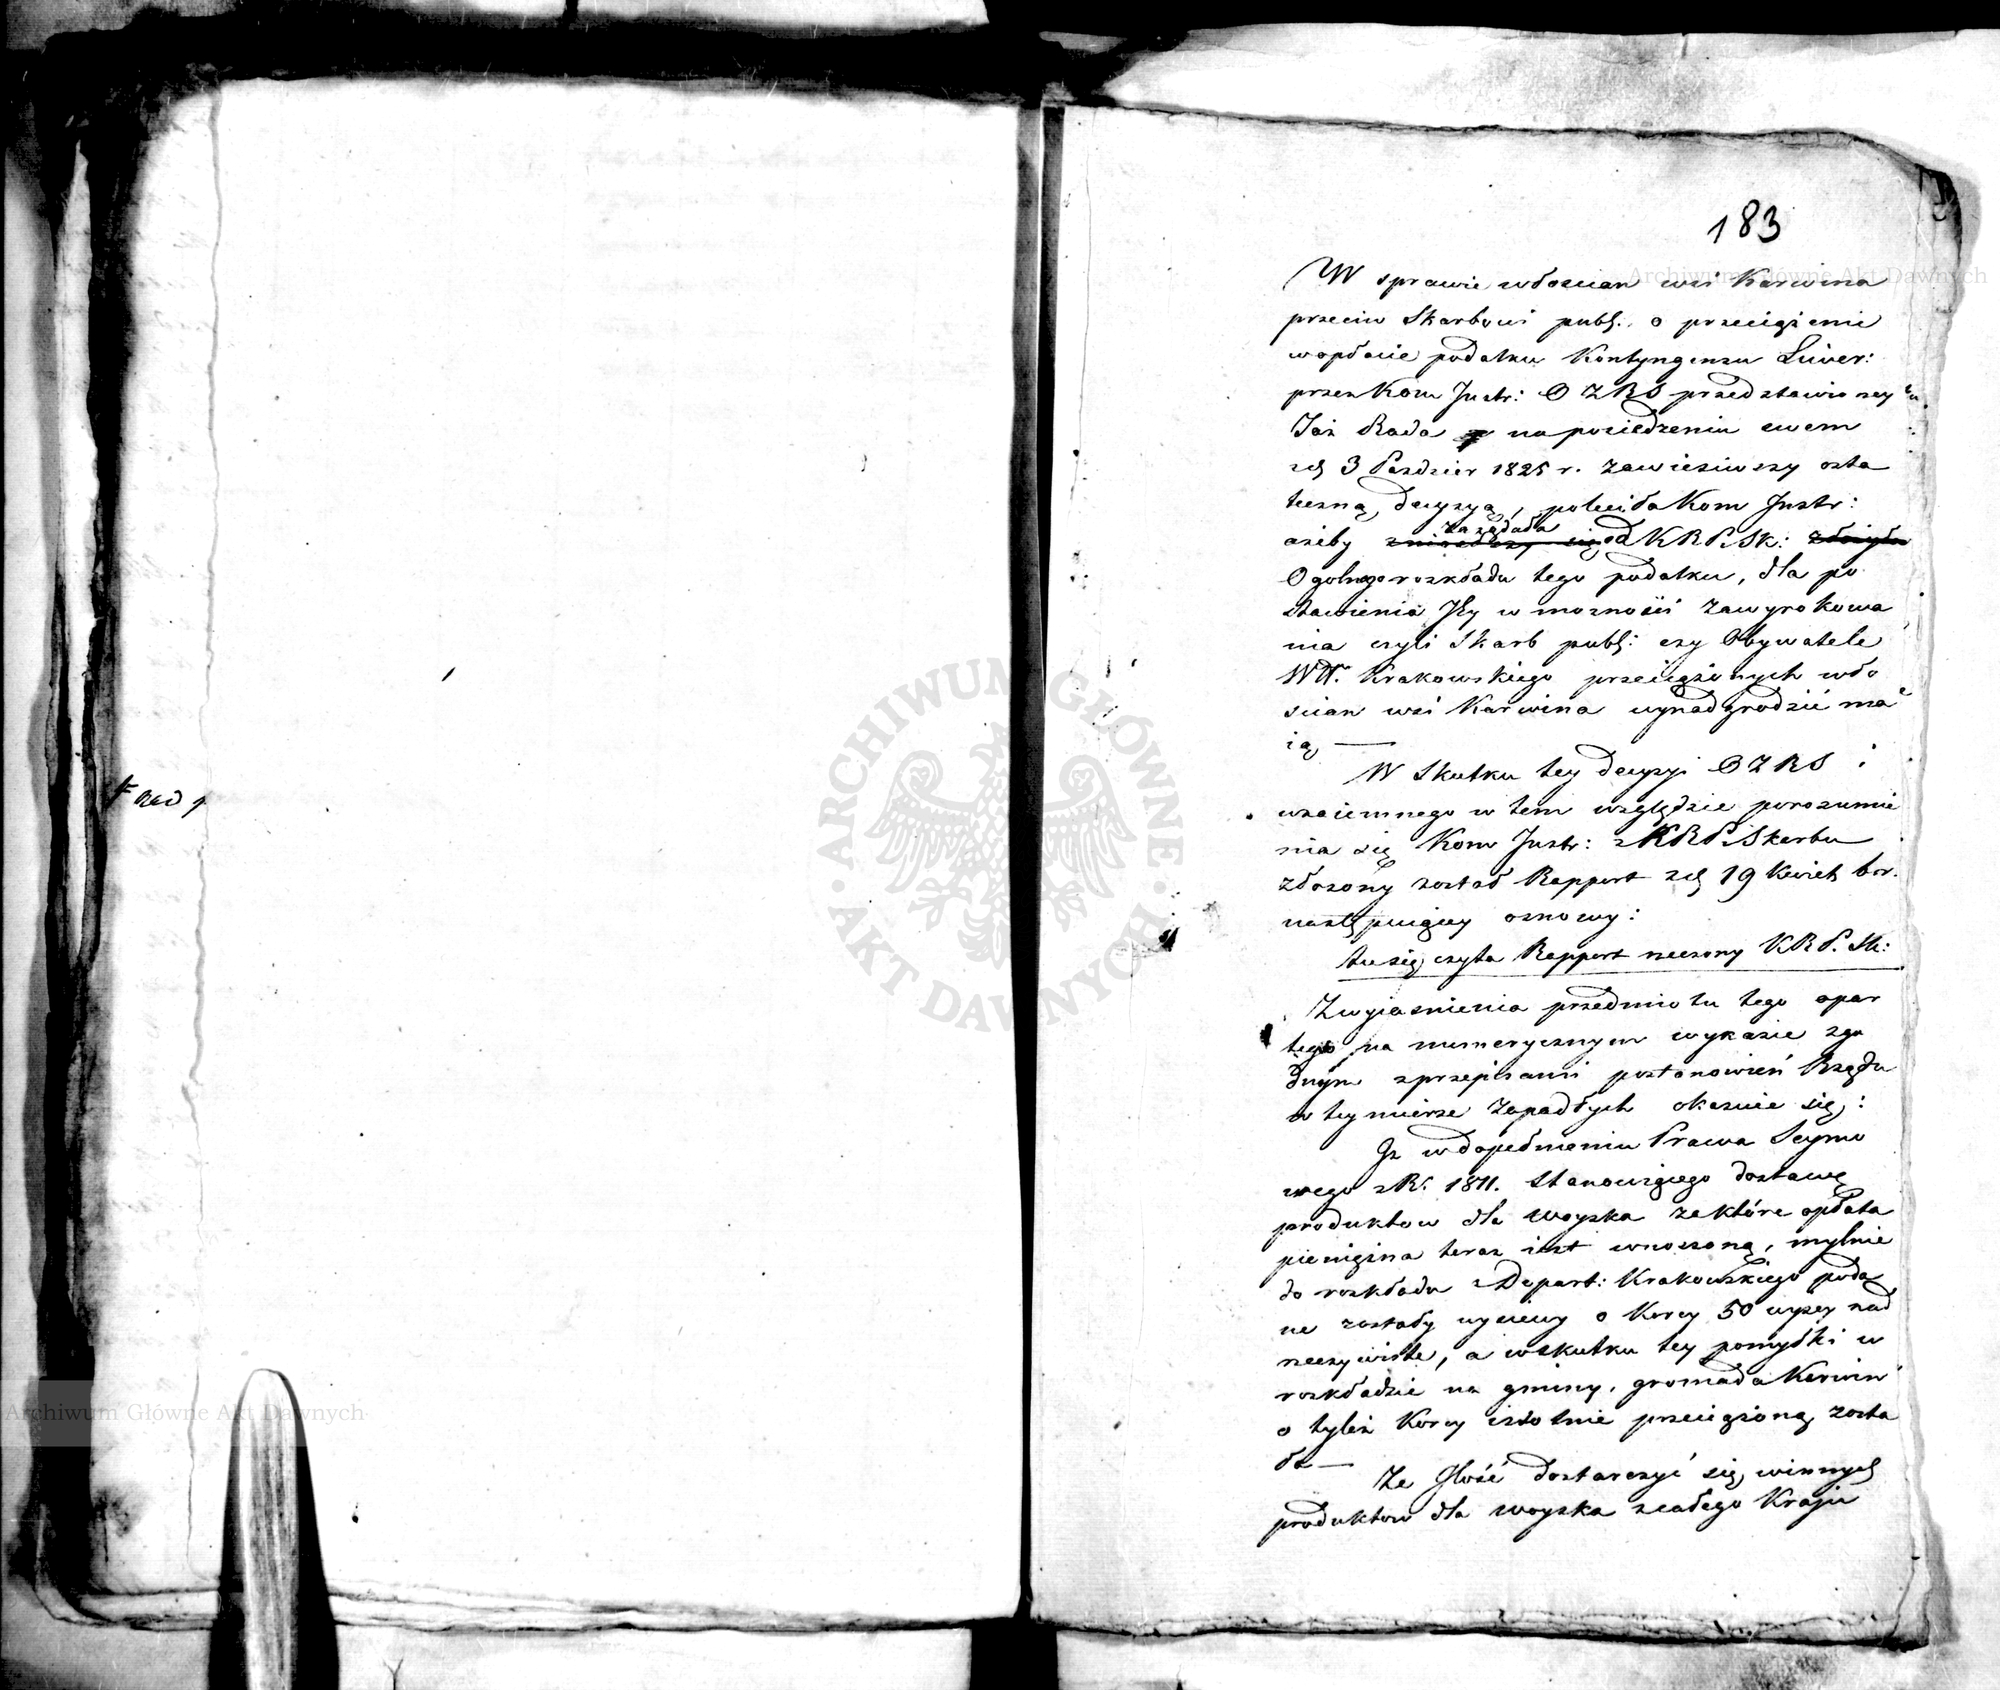 183
W sprawie włościan wsi Karwina
przeciw Skarbowi publ: o przeciążenie
w opłacie podatku Kontyngensu Liwer:
przez Kom Instr: OZRS przedstawioney
Taż Rada na posiedzeniu swem
z d 3 Paździer 1825 r. zawiesiwszy osta
teczną decyzyą, poleciła Kom Instr:
zażądała
ażeby zniosłszy się od KRP.Sk: złożyła
Ogolnego rozkładu tego podatku, dla po
stawienia Jey w możności zawyrokowa
nia czyli Skarb publ: czy Obywatele
Wdz. Krakowskiego przeciążonych wło
ścian wsi Karwina wynadgrodzić ma
ią —
W Skutku tey decyzyi OZRS i
wzaiemnego w tem względzie porozumie
nia się Kom Instr: z KRP.Skarbu
złożony został Rapport z d 19 Kwiet br.
następuiącey osnowy:
tu się czyta Rapport rzeczony KRP. Sk:
Z wyiaśnienia przedmiotu tego opar
tego na numerycznym wykazie zgo
dnym z przepisami postanowień Rządu
w tey mierze zapadłych okazuie się:
Iż w dopełnieniu Prawa Seymo
wego z R. 1811. Stanowiącego dostawę
produktow dla woyska za które opłata
pieniężna teraz iest wnoszoną, mylnie
do rozkładu z Depart: Krakowskiego poda
ne zostały wysiewy o Korcy 50 wyżey nad
rzeczywiste, a w skutku tey pomyłki w
rozkładzie na gminy, gromada Karwin
o tyleż Korcy istotnie przeciążoną zosta
ła —
Ze Ilość dostarczyć się winnych
produktow dla woyska z całego Kraju
Archiwum Główne Akt Dawnych
Archiwum Główne Akt Dawnych
ARCHIWUM GŁÓWNE · AKT DAWNYCH ·